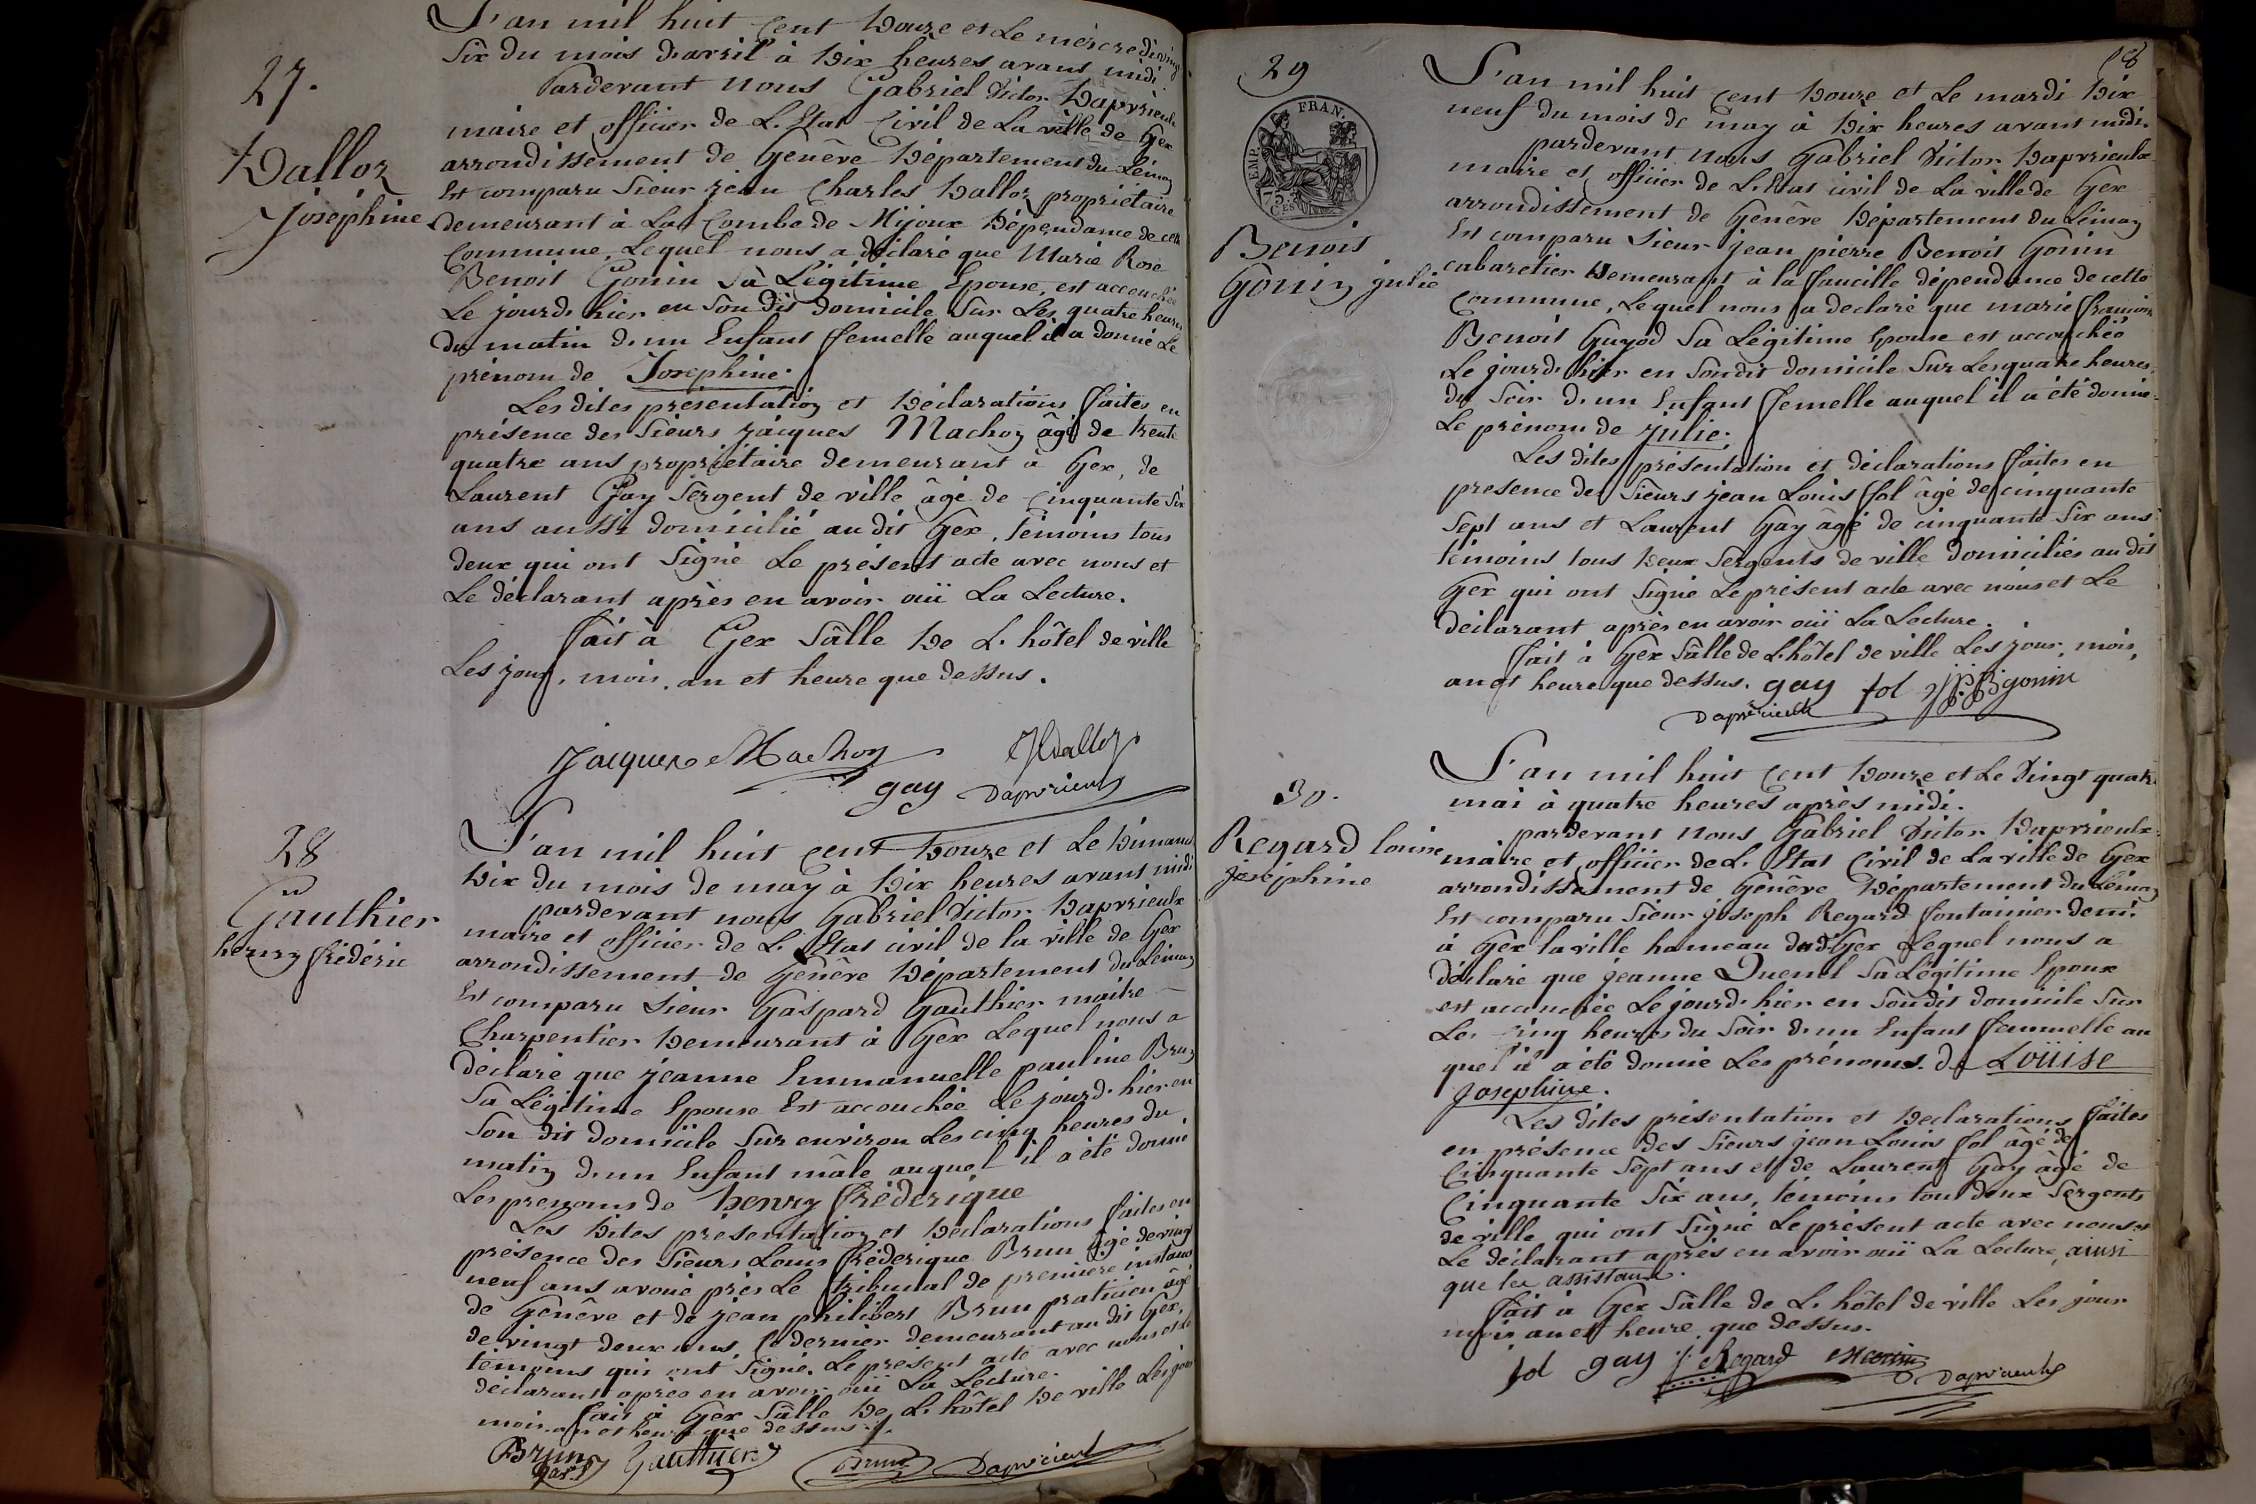 27.
Dalloz
Joséphine
L'an mil huit Cent Douze et Le mercredi vingt
Six du mois d'avril à Dix heures avant midi
Pardevant nous Gabriel Victor Dapvrieulx
maire et officier de L. Etat Civil de La ville de Gex
arrondissement de Genêve Département du Léman
Est comparu Sieur jean Charles Dalloz propriétaire
Demeurant à La Combe de Mijoux Dépendance de cette
Commune, Lequel nous a déclaré que Marie Rose
Benoit Gonin Sà Légitime Epouse, est accouchée
Le jourd. hier en Son dit domicile Sur Les quatre heures
du matin d. un Enfant femelle auquel il a donné Le
prénom de Josephine.
Les dites présentation et Déclarations faites en
présence des Sieurs jacques Machoz âgé de trente
quatre ans propriétaire demeurant à Gex, de
Laurent Gay Sergent de ville âgé de Cinquante Six
ans aussi domicilié au dit Gex, témoins tous
deux qui ont Signé Le présent acte avec nous et
Le déclarant après en avoir ouï La Lecture.
fait à Gex Sâlle De L. hôtel de ville
Les jour, mois, an et heure que dessus.
Jacques Machoz JCDalloz
gay Dapvrieulx
28
Gauthier
henry frédéric
L'an mil huit Cent Douze et Le Dimanche
Dix du mois de may à Dix heures avant midi
pardevant nous Gabriel Victor Dapvrieulx
maire et officier de L. Etat civil de la ville de Gex
arrondissement de Genêve Département du Léman
Est comparu Sieur Gaspard Gauthier maitre
Charpentier Demeurant à Gex Lequel nous a
déclaré que jeanne Emmanuelle pauline Brun
Sa Légitime Epouse Est accouchée Le jourd. hier en
Son dit domicile Sur environ Les cinq heures du
matin d. un Enfant mâle auquel il a été donné
Les prenoms de henry frédérique
Les Dites présentation et Déclarations faites en
présence des Sieurs Louis fréderique Brun âgé de vingt
neuf ans avoué près Le tribunal de première instance
de Genêve et de jean philibert Brun praticien âgé
de vingt deux ans, Ce dernier demeurant au dit Gex,
témoins qui ont Signé Le présent acte avec nous et le
déclarant après en avoir ouï La Lecture.
fait à Gex Sâlle De L. hôtel De ville Les jour
mois an et heure que dessus.
Brun Gauthier Brun Dapvrieulx
29
EMP. FRAN.
75 C
Benoit
Gonin julie
L'an mil huit Cent Douze et Le mardi Dix
neuf du mois de may à Dix heures avant midi.
pardevant nous Gabriel Victor Dapvrieulx
maire et officier de L. Etat civil de La ville de Gex
arrondissement de Genêve Département du Léman
Est comparu Sieur jean pierre Benoit Gonin
cabaretier Demeurant à la faucille dépendance de cette
Commune, Lequel nous a declaré que marie
Benoit Guyod Sa Légitime Epouse est accouchée
Le jourd. hier en Son dit domicile Sur Les quatre heures
du Soir d. un Enfant femelle auquel il a été donné
Le prénom de julie.
Les dites présentation et déclarations faites en
presence des Sieurs jean Louis fol âgé de cinquante
Sept ans et Laurent Gay âgé de cinquante Six ans
témoins tous Deux Sergents de ville domiciliés au dit
Gex qui ont Signé Le présent acte avec nous et Le
déclarant après en avoir ouï La Lecture.
fait à Gex Sâlle de L. hôtel de ville Les jour, mois,
an et heure que dessus. gay fol JPBgonin
Dapvrieulx
30.
Regard louise
joséphine
L'an mil huit Cent Douze et Le Vingt quatre
mai à quatre heures après midi.
pardevant nous Gabriel Victor Dapvrieulx
maire et officier de L. Etat Civil de La ville de Gex
arrondissement de Genêve Département du Léman
Est comparu Sieur joseph Regard fontainier dem.
à Gex la ville hameau dud. Gex Lequel nous a
déclaré que jeanne Sa Légitime Epouse
est accouchée Le jourd. hier en Son dit domicile Sur
Les Cinq heures du Soir d. un Enfant femmelle au
quel il a été donné Les prénoms de Loüise
Josephine.
Les dites présentation et Déclarations faites
en présence des Sieurs jean Louis fol âgé de
Cinquante Sept ans et de Laurent Gay âgé de
Cinquante Six ans, témoins tous deux Sergents
de ville qui ont Signé Le présent acte avec nous et
Le déclarant après en avoir ouï La Lecture, ainsi
que les assistans.
fait à Gex Sâlle de L. hôtel de ville Les jour
mois an et heure que dessus.
fol gay J. Regard Dapvrieulx